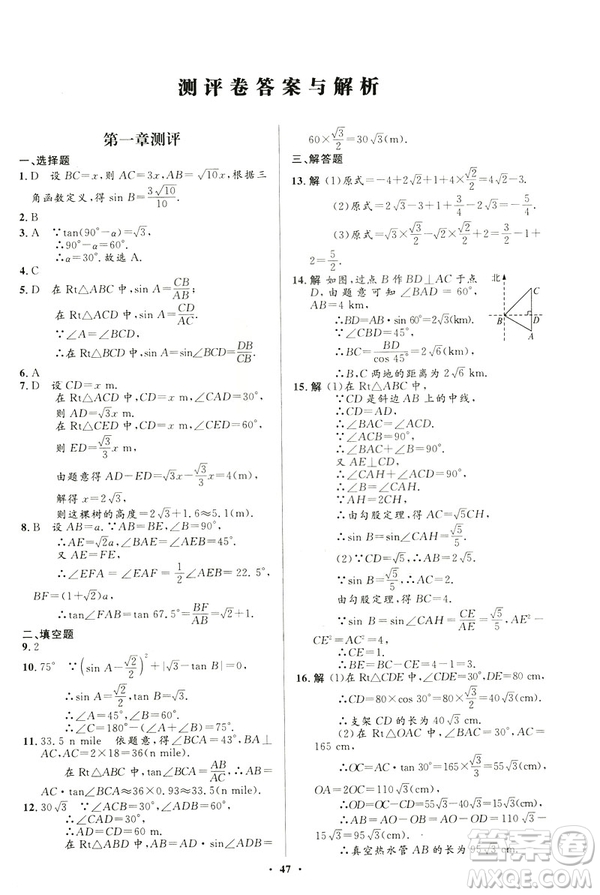 测评卷答案与解析
第一章测评
一、选择题
1. D 设 BC=x,则 AC=3x,AB=√10x,根据三
角函数定义,得 sin B=3√10/10.
2. B
3. A ∵tan(90°-α)=√3,
∴90°-α=60°.
∴α=30°.故选 A.
4. C
5. D 在 Rt△ABC 中,sin A=CB/AB
在 Rt△ACD 中,sin A=CD/AC
∵∠A=∠BCD,
∴在 Rt△BCD 中,sin∠BCD=DB/CB
6. A
7. D 设 CD=x m.
在 Rt△ACD 中,CD=x m,∠CAD=30°,
则 AD=√3x m.
在 Rt△CED 中,CD=x m,∠CED=60°,
则 ED=√3/3x m.
由题意得 AD-ED=√3x-√3/3x=4(m),
解得 x=2√3.
则这棵树的高度=2√3≈5.1(m).
8. B 设 AB=a.∵AB=BE,∠B=90°,
∴AE=√2a,∠BAE=∠BEA=45°.
又 AE=FE,
∴∠EFA=∠EAF=1/2∠AEB=22.5°,
BF=(1+√2)a.
∴tan∠FAB=tan 67.5°=BF/AB=1+√2.
二、填空题
9. 2
10. 75° ∵(sin A-√2/2)²+|√3-tan B|=0,
∴sin A=√2/2,tan B=√3.
∴∠A=45°,∠B=60°.
∴∠C=180°-(∠A+∠B)=75°.
11. 33.5 n mile 依题意,得∠BCA=43°,BA⊥
AC,AC=2×18=36(n mile).
在 Rt△ABC 中,tan∠BCA=AB/AC
∴AB=AC×tan∠BCA≈33.5(n mile).
12. 30√3 ∵∠ACB=∠BAC=30°,
∴AC=AB=60 m.
∴AD=CD=AC·sin∠ACD=AC·sin 60°=
60×√3/2=30√3(m).
三、解答题
13. 解 (1)原式=-4+2√2+1-2√2=-3.
(2)原式=2√3-1+√3/2-6×√3/4+
1+√3/2=2√3.
14. 解 如图,过点 B 作BD⊥AC 于点
D,由题意可知∠BAD=60°,
AB=4 km,
∴BD=AB·sin 60°=2√3 km.
∵∠CBD=45°,
∴BC=BD/cos 45°=2√6 km.
∴B,C 两地的距离为 2√6 km.
北
C
B
D
A
15. 解 (1)在 Rt△ABC 中,
∵CD 是斜边 AB 上的中线,
∴CD=AD=BD.
∴∠BAC+∠ACD=90°.
又 AE⊥CD,
∴∠CAH+∠ACD=90°.
∴∠B=∠CAH.
∵AH=2CH,
∴由勾股定理,得 AC=√5CH.
∴sin B=√5/5.
(2)∵CD=√5,∴AB=2√5.
∵sin B=√5/5,∴AC=2.
由勾股定理,得 BC=4.
∵sin B=sin∠CAH=CE/AE=√5/5,AC²+
CE²=AE²,
∴CE=1.∴BE=3.
16. 解 (1)在 Rt△CDE 中,∠CDE=30°,DE=
80 cm,
∴CD=80×cos 30°=80×√3/2=40√3(cm).
∴支架 CD 的长为 40√3 cm.
(2)在 Rt△OAC 中,∠BAC=30°,AC=
165 cm,
∴OC=AC×tan 30°=165×√3/3=55√3(cm).
OA=2OC=2×55√3=110√3(cm).
∴OD=OC-CD=55√3-40√3=15√3(cm).
∴AB=AO-OB=AO-OD=110√3-
15√3=95√3(cm).
∴真空热水管 AB 的长为 95√3 cm.
47
答案卷